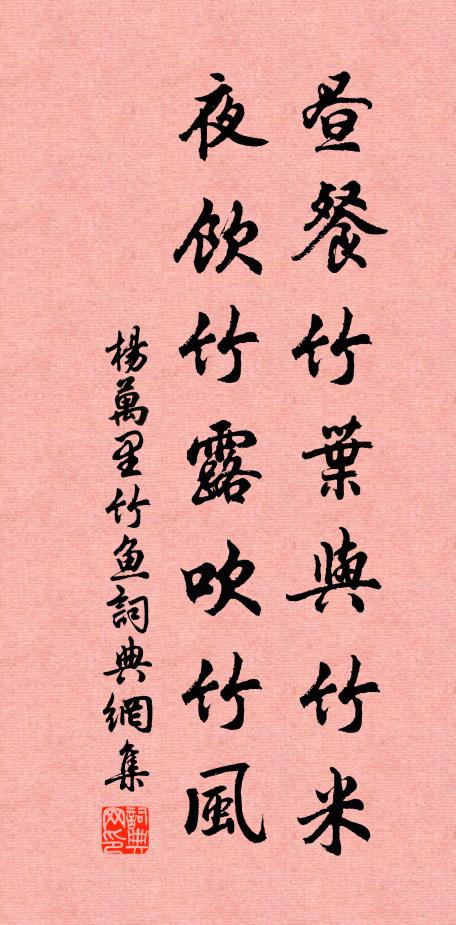 昼餐竹葉與竹米
夜飲竹露吹竹風
楊萬里竹魚詞典網集
詞典网印